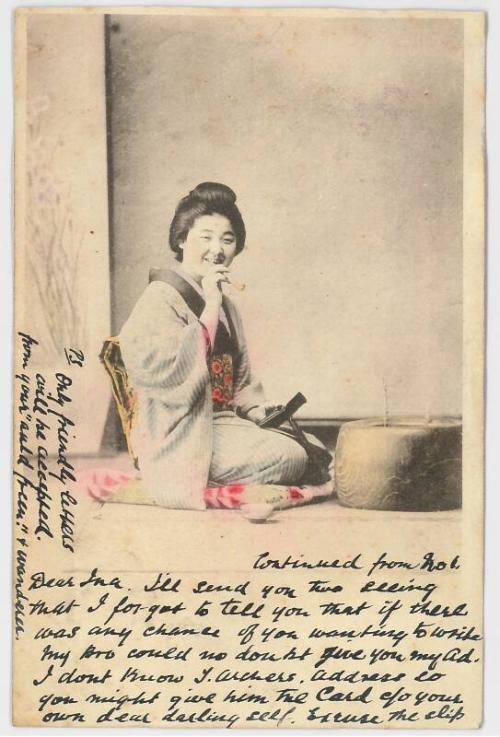 Continued from No 1.
Dear Ina. I'll send you two seeing
that I forgot to tell you that if there
was any chance of you wanting to write
my Bro could no doubt give you my Ad.
I dont know J. Archers. Address so
you might give him the Card c/o your
own dear darling self. Excuse the slip
PS Only friendly letters
will be accepted.
from your "auld freen." & wanderer.